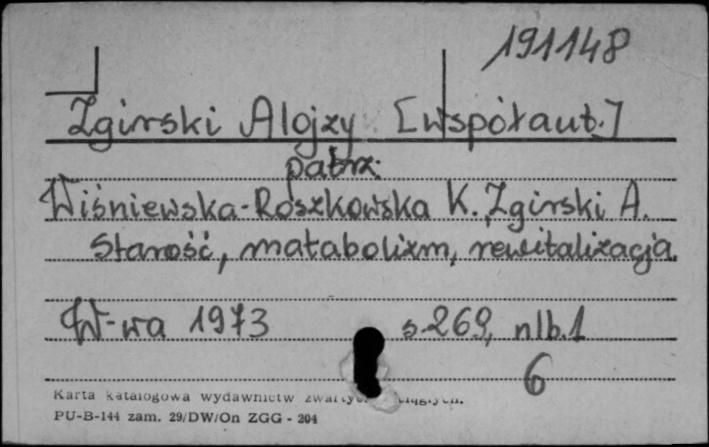 191148
Zgirski Alojzy [współaut.]
patrz:
Wiśniewska-Roszkowska K. Zgirski A.
Starość, matabolizm, rewitalizacja.
W-wa 1973 s. 269, nlb. 1
6
Karta katalogowa wydawnictw
PU-B-144 zam. 29/DW/On ZGG - 204